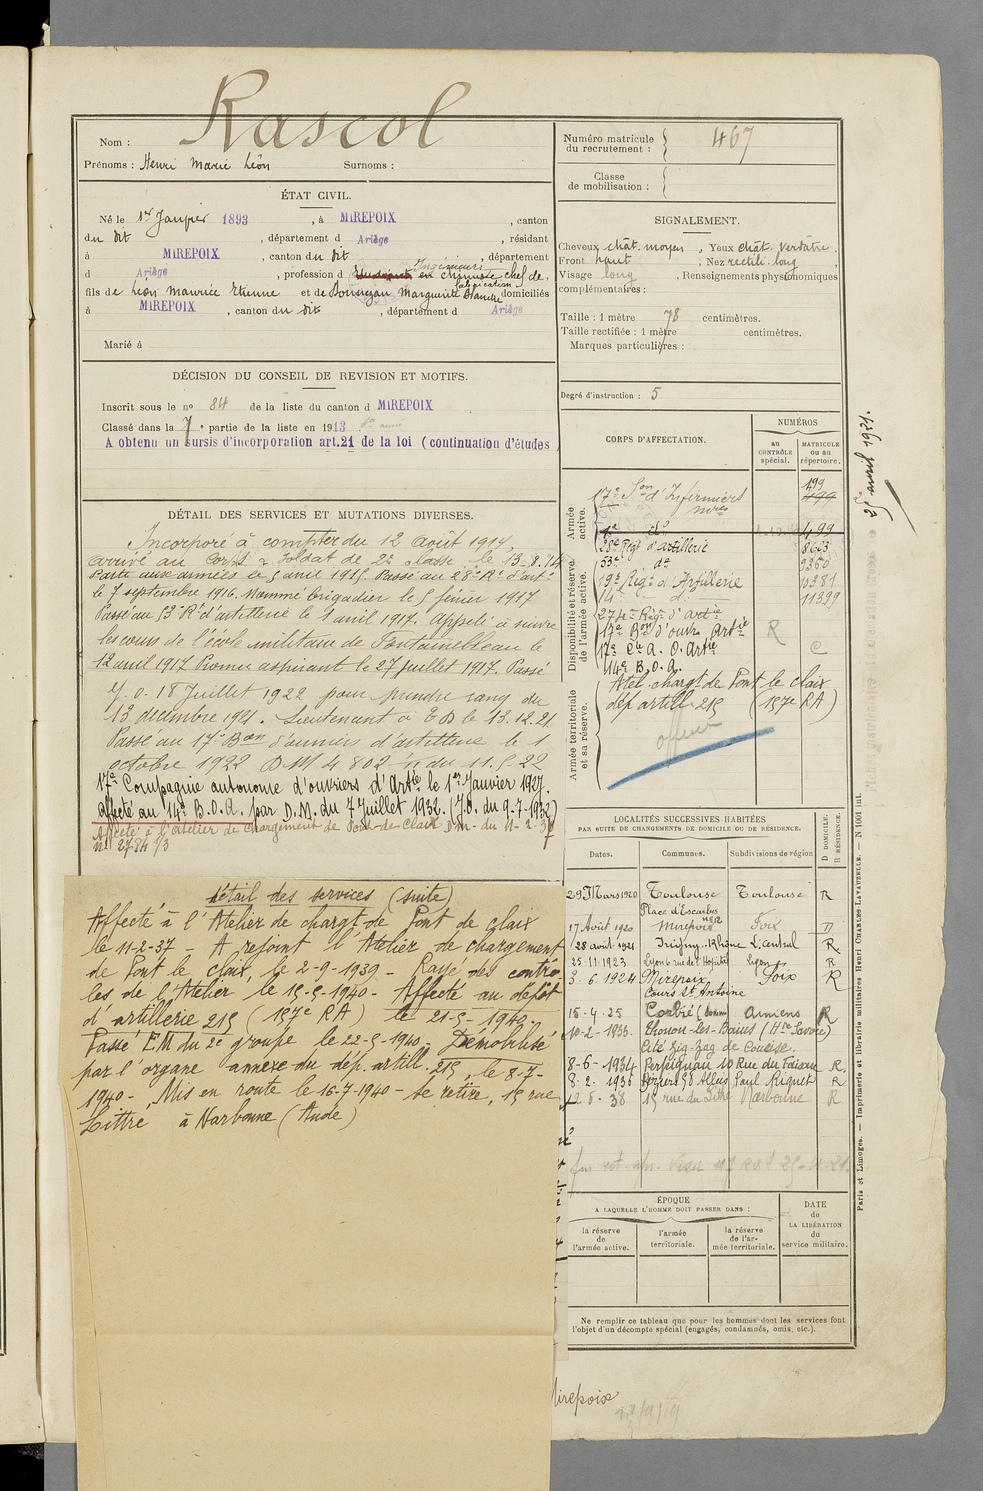 Rascol
Nom :
Prénoms : Henri Marie Léon Surnoms :
Numéro matricule du recrutement : 467
Classe de mobilisation :
ÉTAT CIVIL.
Né le 1er Janvier 1893, à MIREPOIX, canton
du dit, département d Ariège, résidant
à MIREPOIX, canton du dit, département
d Ariège, profession d Ingénieur chimiste chef de fabrication,
fils de Léon Maurice Etienne et de Marguerite Blanche domiciliés
à MIREPOIX, canton du dit, département d Ariège
Marié à
SIGNALEMENT.
Cheveux chât. moyen, Yeux chât. verdâtre
Front haut, Nez rectil. long,
Visage long, Renseignements physionomiques
complémentaires :
Taille : 1 mètre 78 centimètres.
Taille rectifiée : 1 mètre centimètres.
Marques particulières :
Degré d'instruction : 5
DÉCISION DU CONSEIL DE REVISION ET MOTIFS.
Inscrit sous le no 84 de la liste du canton d MIREPOIX
Classé dans la 7e partie de la liste en 1913
A obtenu un sursis d'incorporation art.21 de la loi (continuation d'études)
DÉTAIL DES SERVICES ET MUTATIONS DIVERSES.
Incorporé à compter du 12 Août 1914,
arrivé au Corps & Soldat de 2e classe le 13-8-14
Parti aux armées le 5 avril 1915. Passé au 28e Rt d'arte
le 7 septembre 1916. Nommé brigadier le 5 février 1917
Passé au 53e Rt d'artillerie le 1 avril 1917. Appelé à suivre
les cours de l'école militaire de Fontainebleau le
12 avril 1917 Promu aspirant le 27 juillet 1917. Passé
J.O. 18 Juillet 1922 pour prendre rang du
13 décembre 1921. Lieutenant à T D le 13.12.21
Passé au 17e Bon d'ouvriers d'artillerie le 1
octobre 1922 D.M 4802 du 11.9.22
17e Compagnie autonome d'ouvriers d'Artie le 1er Janvier 1927.
Affecté au 14e B.O.A. par D.M. du 7 Juillet 1932. (J.O. du 9-7-1932)
Affecté à l'atelier de chargement de Pont-de-Claix D.M. du 11-2-37
n° 2784 /3
Détail des services (suite)
Affecté à l'Atelier de chargt de Pont de Claix
le 11-2-37 - A rejoint l'Atelier de chargement
de Pont le Claix, le 2-9-1939 - Rayé des contrô-
les de l'Atelier le 15-5-1940 - Affecté au dépôt
d'artillerie 215 (157e RA) le 21-5-1940.
Passé E.M du 2e groupe le 22-5-1940. Démobilisé
par l'organe annexe du dép. artill. 215, le 8-7-
1940 - Mis en route le 16-7-1940 - se retire, 15 rue
Littré à Narbonne (Aude)
CORPS D'AFFECTATION.
NUMÉROS
au CONTRÔLE spécial.
MATRICULE ou au répertoire.
Armée active.
17e Son d'Infirmiers mres 499
499
Disponibilité et réserve de l'armée active.
28e Régt d'artillerie 8623
53e do 9360
19e Régt d'Artillerie 10381
14e d° 11399
274e Régt d'artie
17e Bon d'ouvr. Artie R
17e Cie A. O. Artie C
14e B.O.A.
Armée territoriale et sa réserve.
Atel. chargt de Pont le Claix
dép artill 215 (157e RA)
officier
25 avril 1921.
LOCALITÉS SUCCESSIVES HABITÉES
PAR SUITE DE CHANGEMENTS DE DOMICILE OU DE RÉSIDENCE.
Dates. Communes. Subdivisions de région D DOMICILE. R RÉSIDENCE.
29 Mars 1920 Toulouse Toulouse R
Place d'Escarbes n° 12
17 Août 1920 Mirepoix Foix D
28 août 1921 Irigny. Rhône L. central R.
25 11.1923 Lyon 6 rue de l'Hopital Lyon R
3-6-1924 Mirepoix Foix R
Cours St Antoine
15-4-25 Corbie (Somme) Amiens R
10-2-1933. Thonon-les-Bains (Hte Savoie)
Cité zig-zag de Concise.
8-6-1934 Perpignan 10 Rue du Faisan R.
8-2-1936 Béziers 58 Allées Paul Riquet R
12-5-38 15 rue du Littré Narbonne R
ÉPOQUE
A LAQUELLE L'HOMME DOIT PASSER DANS :
la réserve de l'armée active.
l'armée territoriale.
la réserve de l'armée territoriale.
DATE de LA LIBÉRATION du service militaire.
Ne remplir ce tableau que pour les hommes dont les services font
l'objet d'un décompte spécial (engagés, condamnés, omis, etc.).
Mirepoix
Paris et Limoges. — Imprimerie et librairie militaires Henri CHARLES-LAVAUZELLE. — N 1001 int.